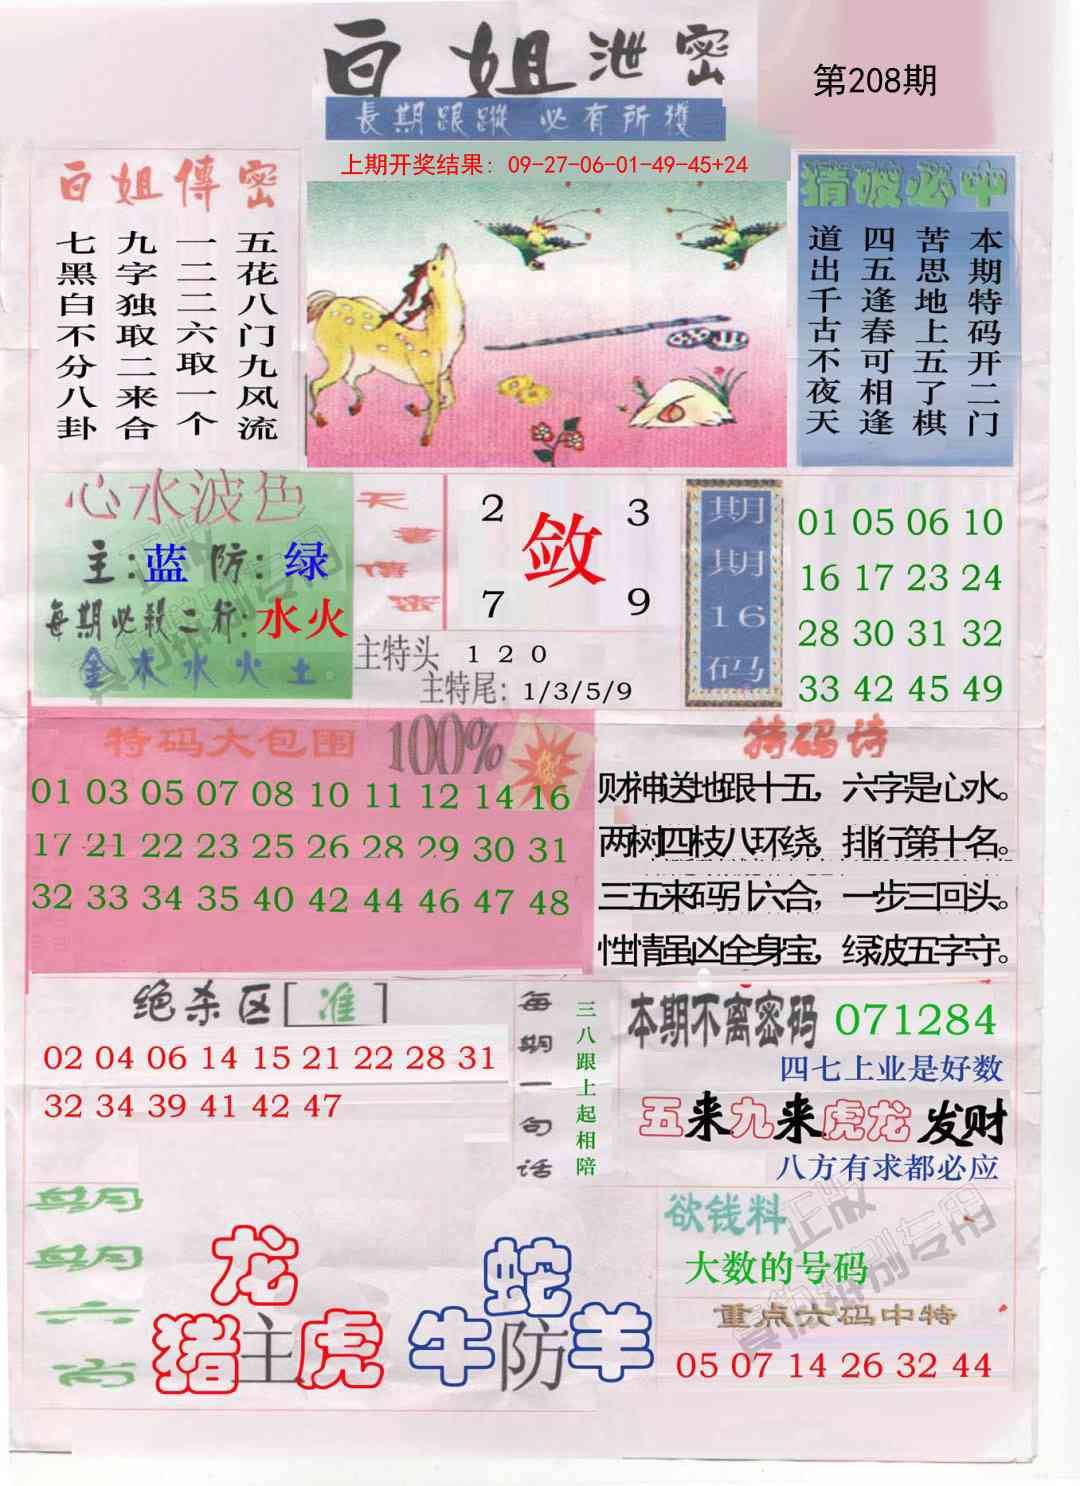 白姐泄密
第208期
長期跟蹤 必有所獲
上期开奖结果：09-27-06-01-49-45+24
白姐傳密
五花八门九风流
一二二六取一个
九字独取二来合
七黑白不分八卦
猜破必中
本期特码开二门
苦思地上五了棋
四五逢春可相逢
道出千古不夜天
心水波色
主:蓝 防:绿
每期必殺二行:水火
金木水火土
天書傳密
2 3
敛
7 9
主特头 1 2 0
主特尾: 1/3/5/9
期期16码
01 05 06 10
16 17 23 24
28 30 31 32
33 42 45 49
特码大包围 100%
01 03 05 07 08 10 11 12 14 16
17 21 22 23 25 26 28 29 30 31
32 33 34 35 40 42 44 46 47 48
特码诗
财神送地跟十五，六字是心水。
两树四枝八环绕，排行第十名。
三五来码引六合，一步三回头。
性情虽凶全身宝，绿波五字守。
绝杀区[准]
02 04 06 14 15 21 22 28 31
32 34 39 41 42 47
每期一句话
三八跟上起相陪
本期不离密码 071284
四七上业是好数
五来九来虎龙发财
八方有求都必应
期期六肖
龙
猪主虎
蛇
牛防羊
欲钱料
大数的号码
重点六码中特
05 07 14 26 32 44